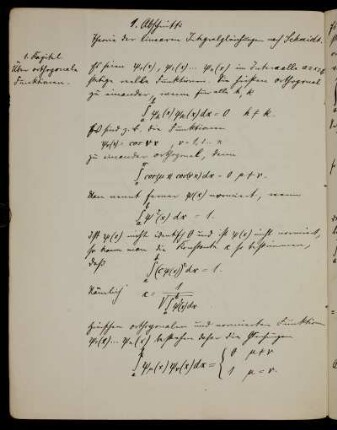 1. Abschnitt.
Theorie der linearen Integralgleichungen nach Schmidt.
1. Kapitel
Über orthogonale
Funktionen.
Es seien φ₁(x), φ₂(x) ... φₙ(x) im Intervalle a≤x≤b
stetige reelle Funktionen. Sie heißen orthogonal
zu einander, wenn für alle h, k
∫ₐᵇ φₕ(x) φₖ(x) dx = 0   h ≠ k.
So sind z. B. die Funktionen
φᵥ(x) = cos νx , ν = 1, 2 ... n
zu einander orthogonal, denn
∫ cos μx cos νx dx = 0 μ ≠ ν.
Man nennt ferner φ(x) normiert, wenn
∫ₐᵇ φ²(x) dx = 1.
Ist φ(x) nicht identisch 0 und ist φ(x) nicht normiert,
so kann man die Konstante c so bestimmen,
daß
∫ₐᵇ (cφ(x))² dx = 1.
Nämlich c = 1/√∫ₐᵇ φ²(x) dx
Zwischen orthogonalen und normierten Funktionen
φ₁(x) ... φₙ(x) bestehen daher die Gleichungen
∫ₐᵇ φ_μ(x) φ_ν(x) dx = { 0 μ ≠ ν
1 μ = ν.